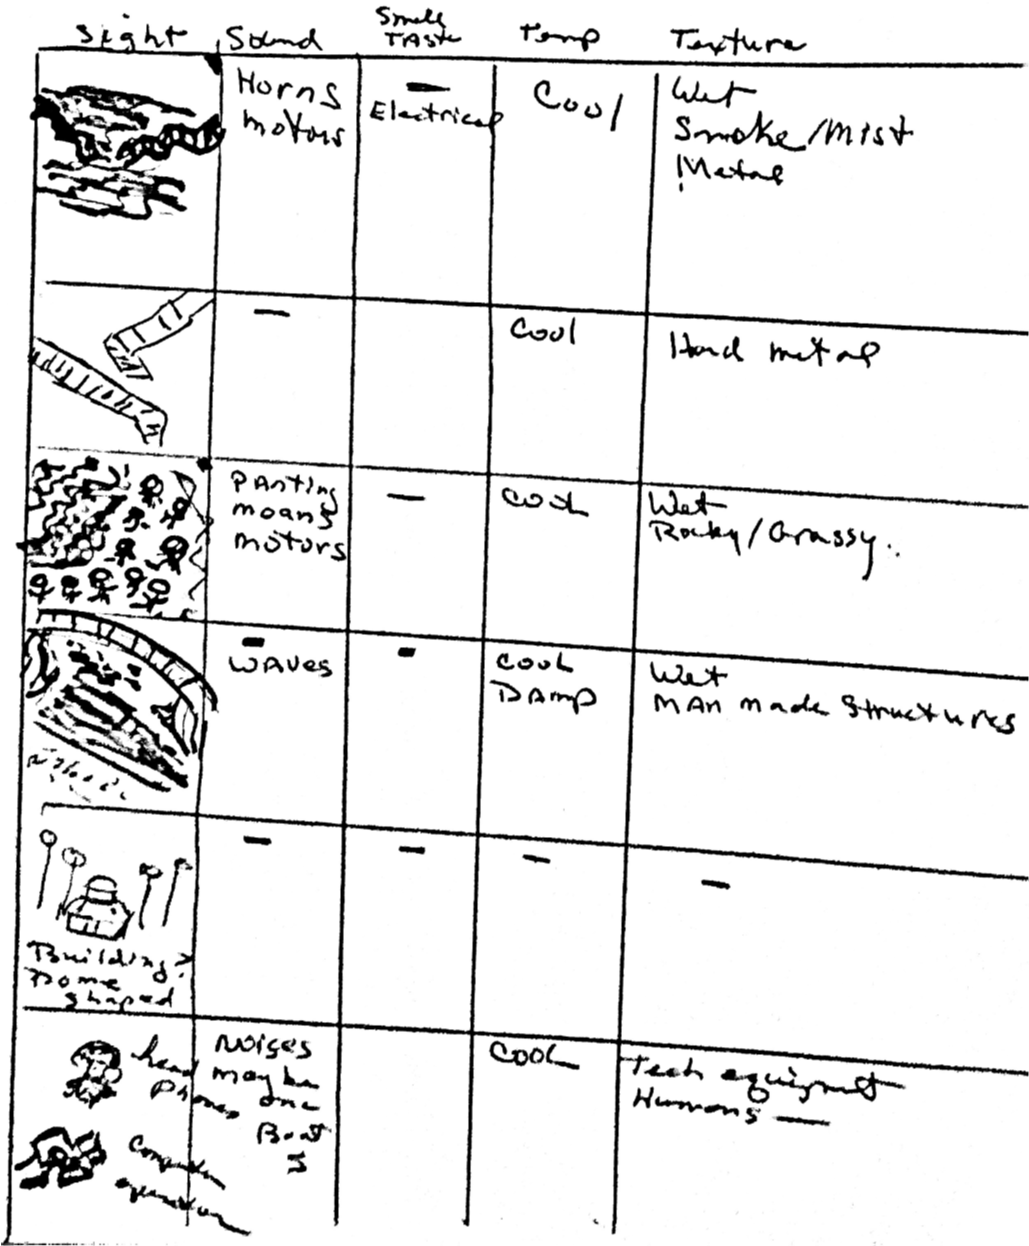 Sight Sound Smell Taste Temp Texture
Horns
motors
— Electrical
Cool
Wet
Smoke/Mist
Metal
—
Cool
Hard metal
Panting
moans
motors
—
Cool
Wet
Rocky/Grassy..
—
Waves
—
Cool
Damp
Wet
Man made Structures
Building?
Dome
shaped
—
—
—
—
head
Phones
Noises
maybe
one
Boat
Cool
Tech equipmt
Humans —